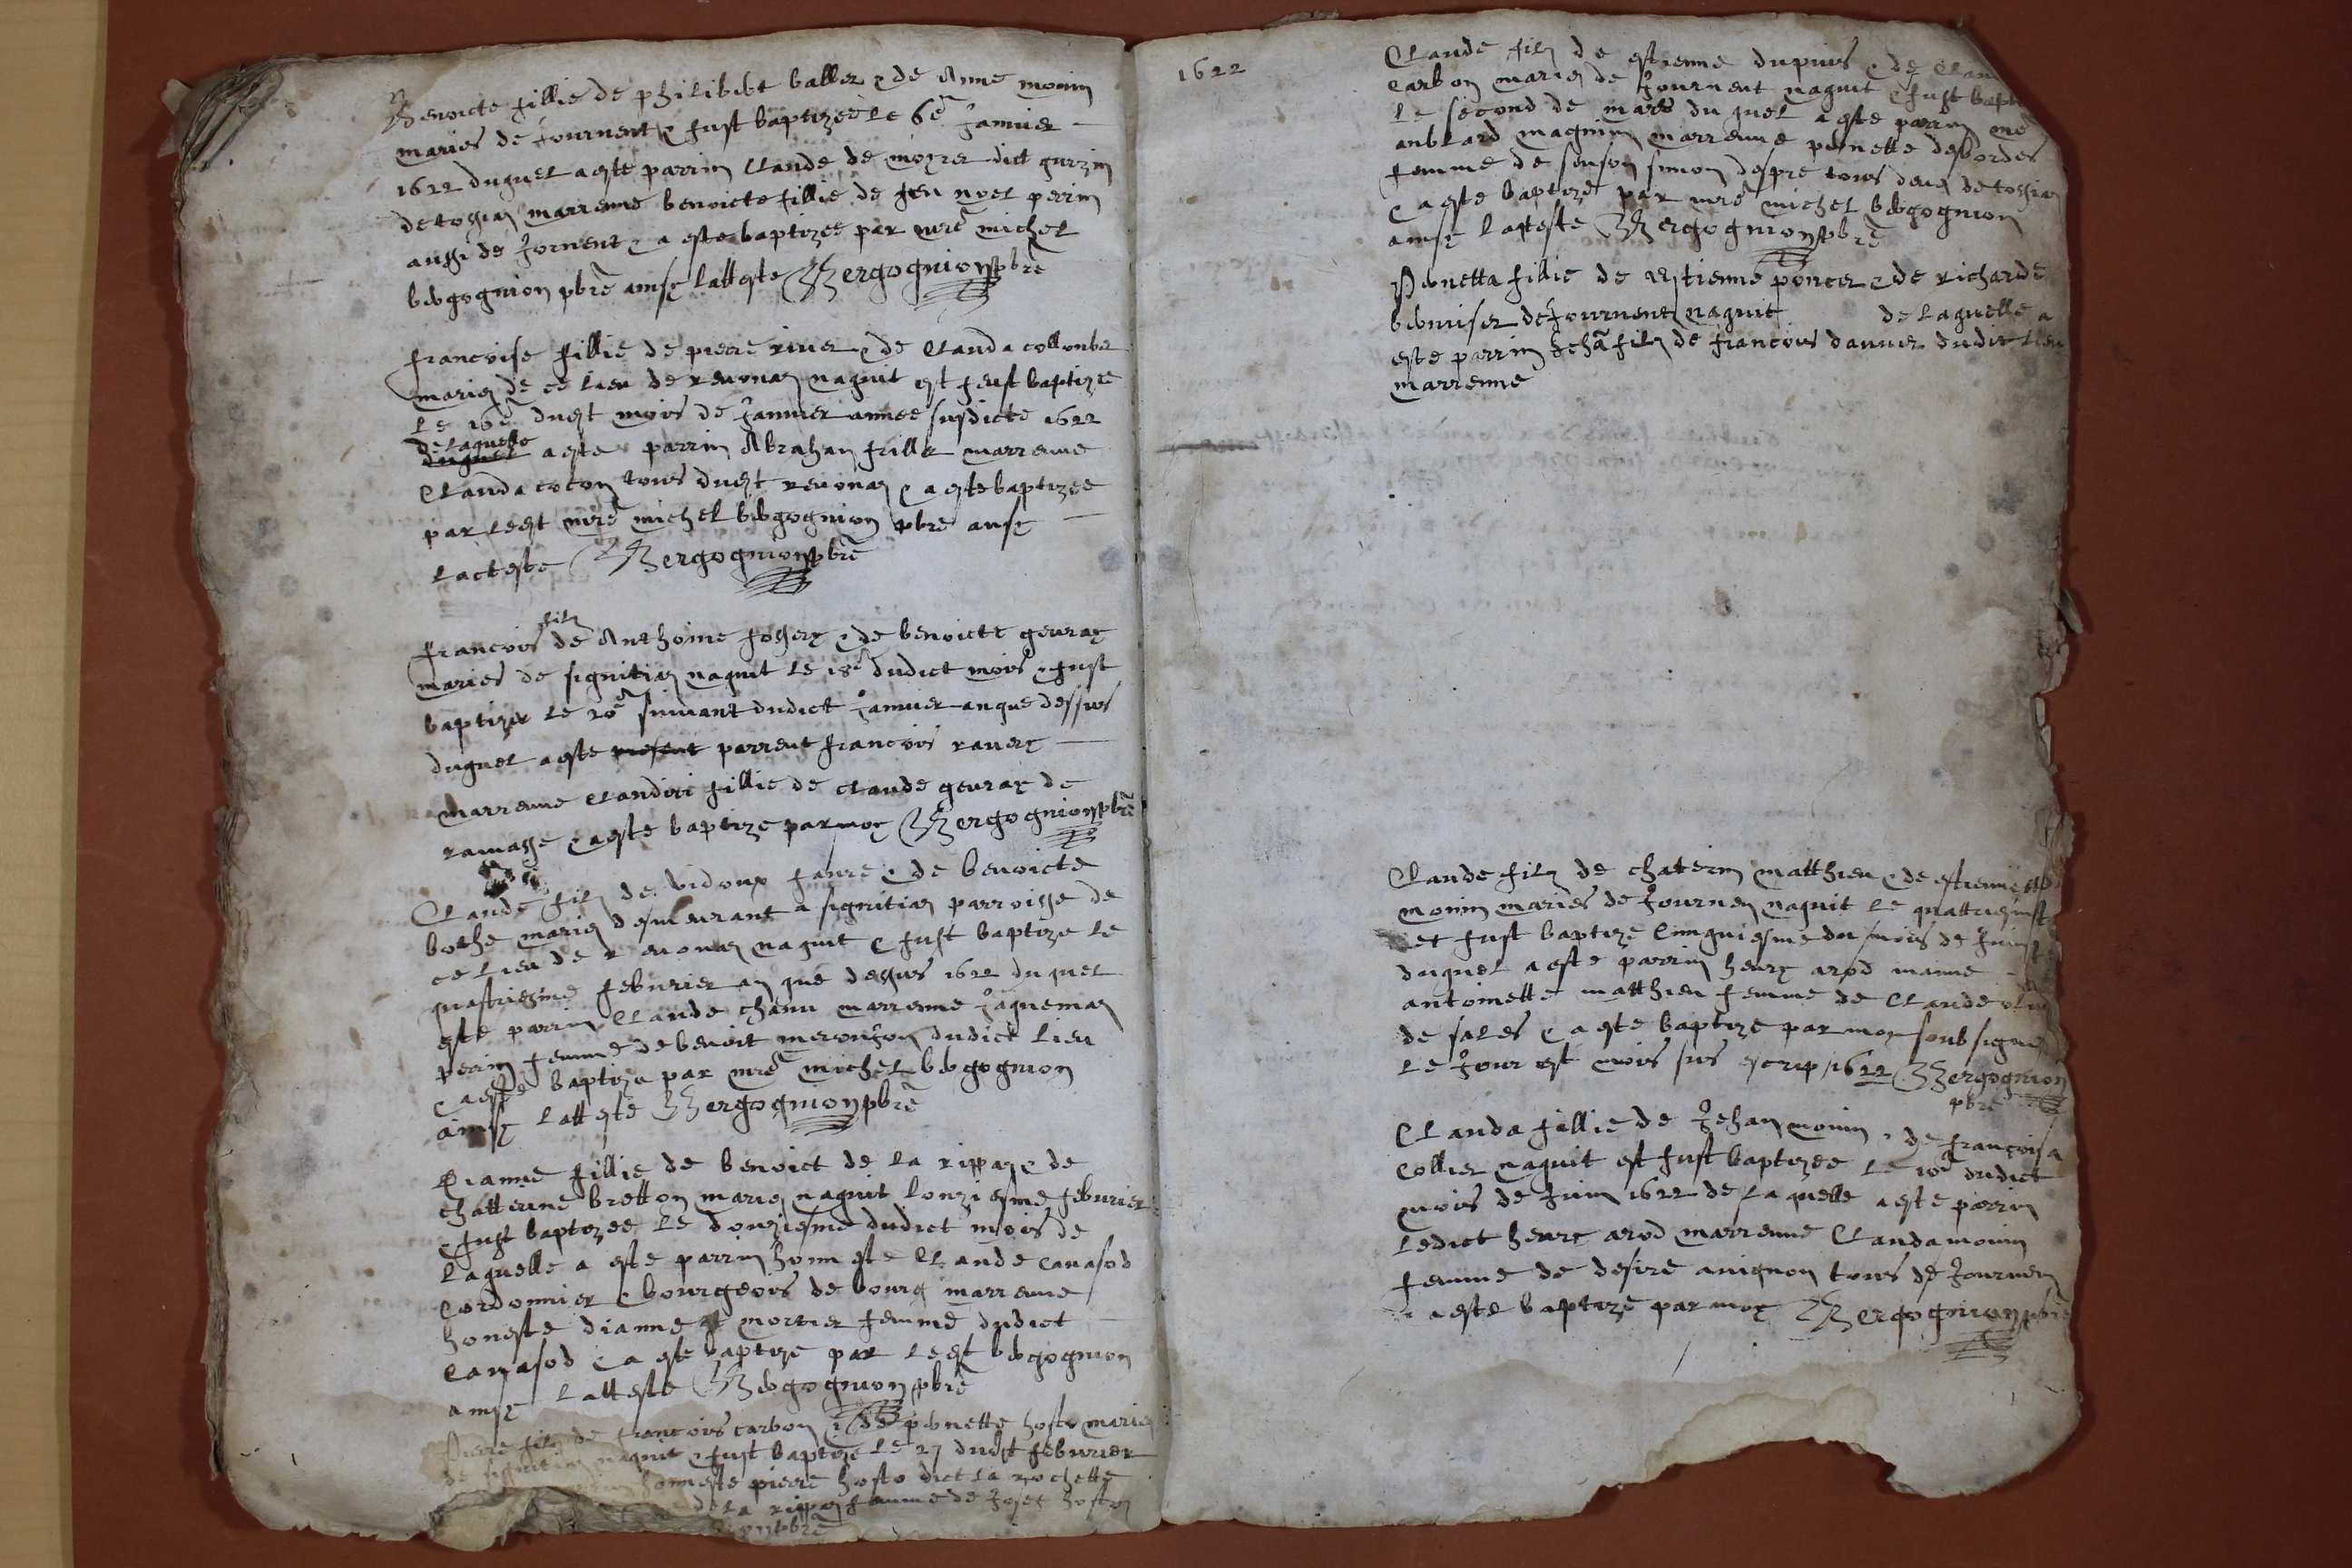 Benoicte fillie de philibert baller & de Anne monin
mariés de Journent & fust baptizeé le 6e Januier
1622 duquel a este parrin Claude de moyrer dict gurzin
de tossia marrenne benoicte fillie de feu noel perrin
aussi de Jornent & a este baptizeé par mre michel
bergognion pbre ainsy latteste Bergognion pbre
françoise fillie de pierre riuer & de Clauda collonber
mariez de ce lieu de reuonas naquit est feust baptizé
Le 16e duest mois de Januier anneé susdicte 1622
de laquelle
duquel a este parrin Abrahan friller marrenne
Clauda coton tous duest reuonas & a este baptizeé
par leest mre michel bergognion pbre ainsy
lacteste Bergognion pbre
filz
françois de Anthoine fossery & de benoicte geuray
mariés de signitia naquit le 18e dudict mois & fust
baptizer le 20e suiuant dudict Januier an que dessus
duquel a este present parrent françois rauery
marrenne Claudine fillie de claude geuray de
ramasse & a este baptizé par moy Bergognion pbre
Claude filz de vidoux faure & de benoicte
bothe mariez demeurant a signitia parroisse de
ce lieu de reuonas naquit & fust baptize le
quastriesme feburier an que dessus 1622 duquel
este parrin Claude chanu marrenne Jaquema
perrin femme de benoit meronJon dudict lieu
& a este baptizé par mre michel bergognion
ainsy latteste Bergognion pbre
Dianne fillie de benoict de la rippaz & de
Chatterine bretton mariez naquit lonziesme feburier
& fust baptizeé le douziesme dudict mois de
Laquelle a este parrin honneste Claude canasod
Cordonnier & bourgeois de bourg marrenne
honeste dianne mortier femme dudict
Canasod & a este baptize par leest bergognion
ainsy latteste Bergognion pbre
Pierre filz de françois carbon & de pernette hoste mariez
de signitia naquit & fust baptize le 27 duest feburier
honneste pierre hosto dict la rochette
de la rippaz femme de Josef hoston
pbre
1622
Claude filz de estienne dupuis & de Clau
Carbon mariez de Journent naquit & fust bapt
Le second de mars du quel a este parrin mre
anblard magnin marrenne pernette desbordes
femme de senson simon despre tous deux de tossia
& a este baptize par mre michel bergognion
ainsy latteste Bergognion pbre
Pernetta fillie de Estienne poncer & de richarde
bernuser de Journent naquit de Laquelle a
este parrin Jehan filz de françois dannier dudict lieu
marrenne
Claude filz de chaterin matthieu & de estienne
monin mariés de Journen naquit le quattriesme
et fust baptizé cinquiesme du mois de Juin
duquel a este parrin heury arod marine
antoinette matthieu femme de Claude
de sales & a este baptize par moy soub signe
Le Jour est mois sus escrip 1622 Bergognion
pbre
Clauda fillie de Jehan monin & de françoisa
Collier naquit est fust baptizeé le 10e dudict
mois de Juin 1622 de laquelle a este parrin
Ledict heury arod marrenne Clauda monin
femme de desiré auignon tous de Journen
& a este baptizé par moy Bergognion pbre